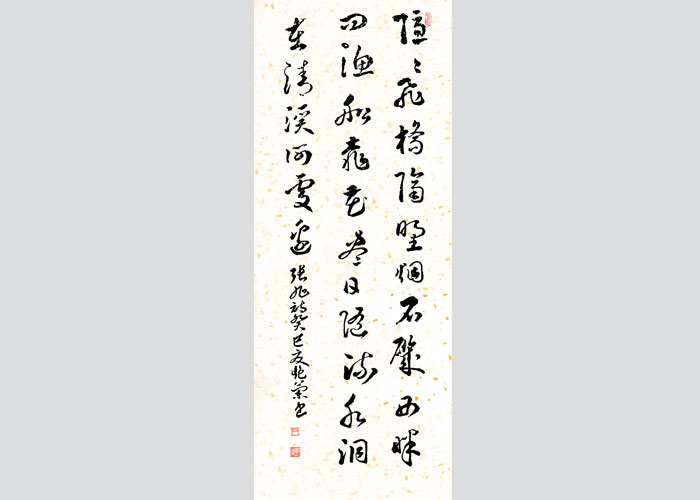 隱〻飛橋隔野烟石磯西畔
问渔船桃花尽日随流水洞
在清溪何處邊
张旭诗癸巳夏 書